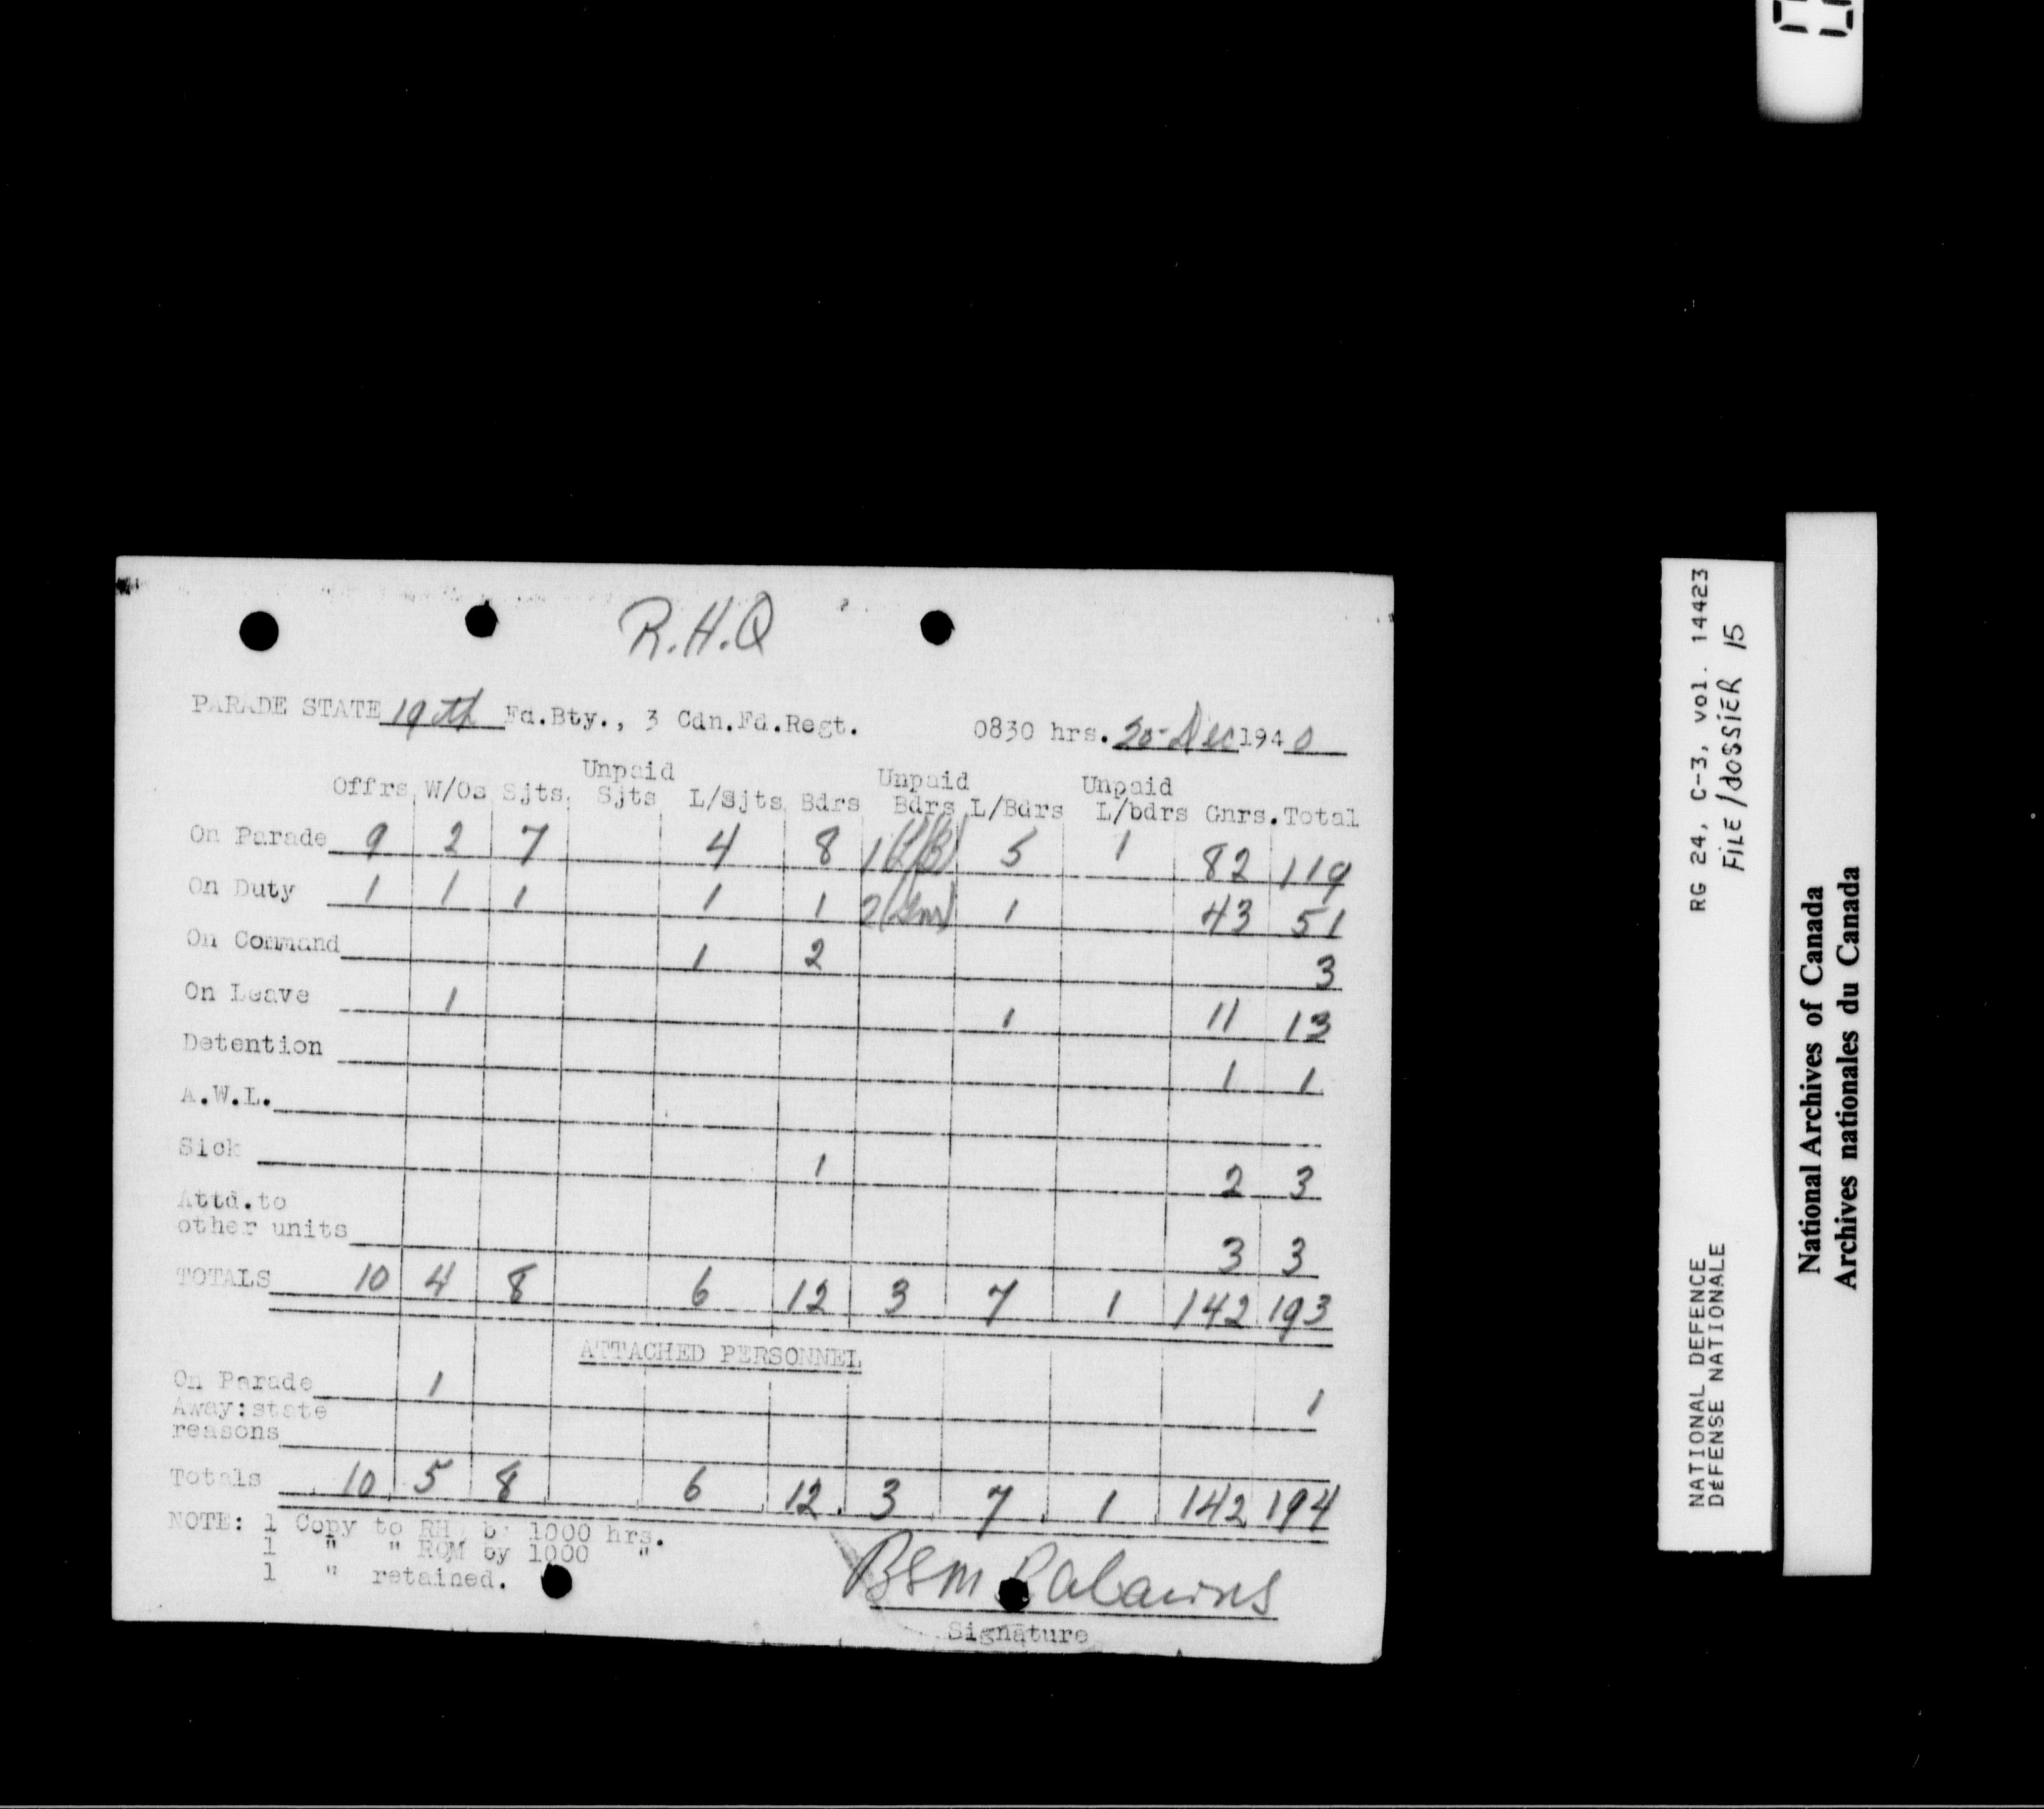 R.H.Q
PARADE STATE 19th Fd.Bty., 3 Cdn.Fd.Regt. 0830 hrs. 20-Dec 1940
Offrs W/Os Sjts Unpaid Sjts L/Sjts Bdrs Unpaid Bdrs L/Bdrs Unpaid L/bdrs Gnrs. Total
On Parade 9 2 7 4 8 1(L/B) 5 1 82 119
On Duty 1 1 1 1 1 2(Gnr) 1 43 51
On Command 1 2 3
On Leave 1 1 11 13
Detention 1 1
A.W.L.
Sick 1 2 3
Attd.to
other units 3 3
TOTALS 10 4 8 6 12 3 7 1 142 193
ATTACHED PERSONNEL
On Parade 1 1
Away:state
reasons
Totals 10 5 8 6 12 3 7 1 142 194
NOTE: 1 Copy to RH by 1000 hrs.
1 " " RQM by 1000 "
1 " retained.
BSM
Signature
RG 24, C-3, vol. 14423
FILE/dOSSIER 15
NATIONAL DEFENCE
DéFENSE NATIONALE
National Archives of Canada
Archives nationales du Canada